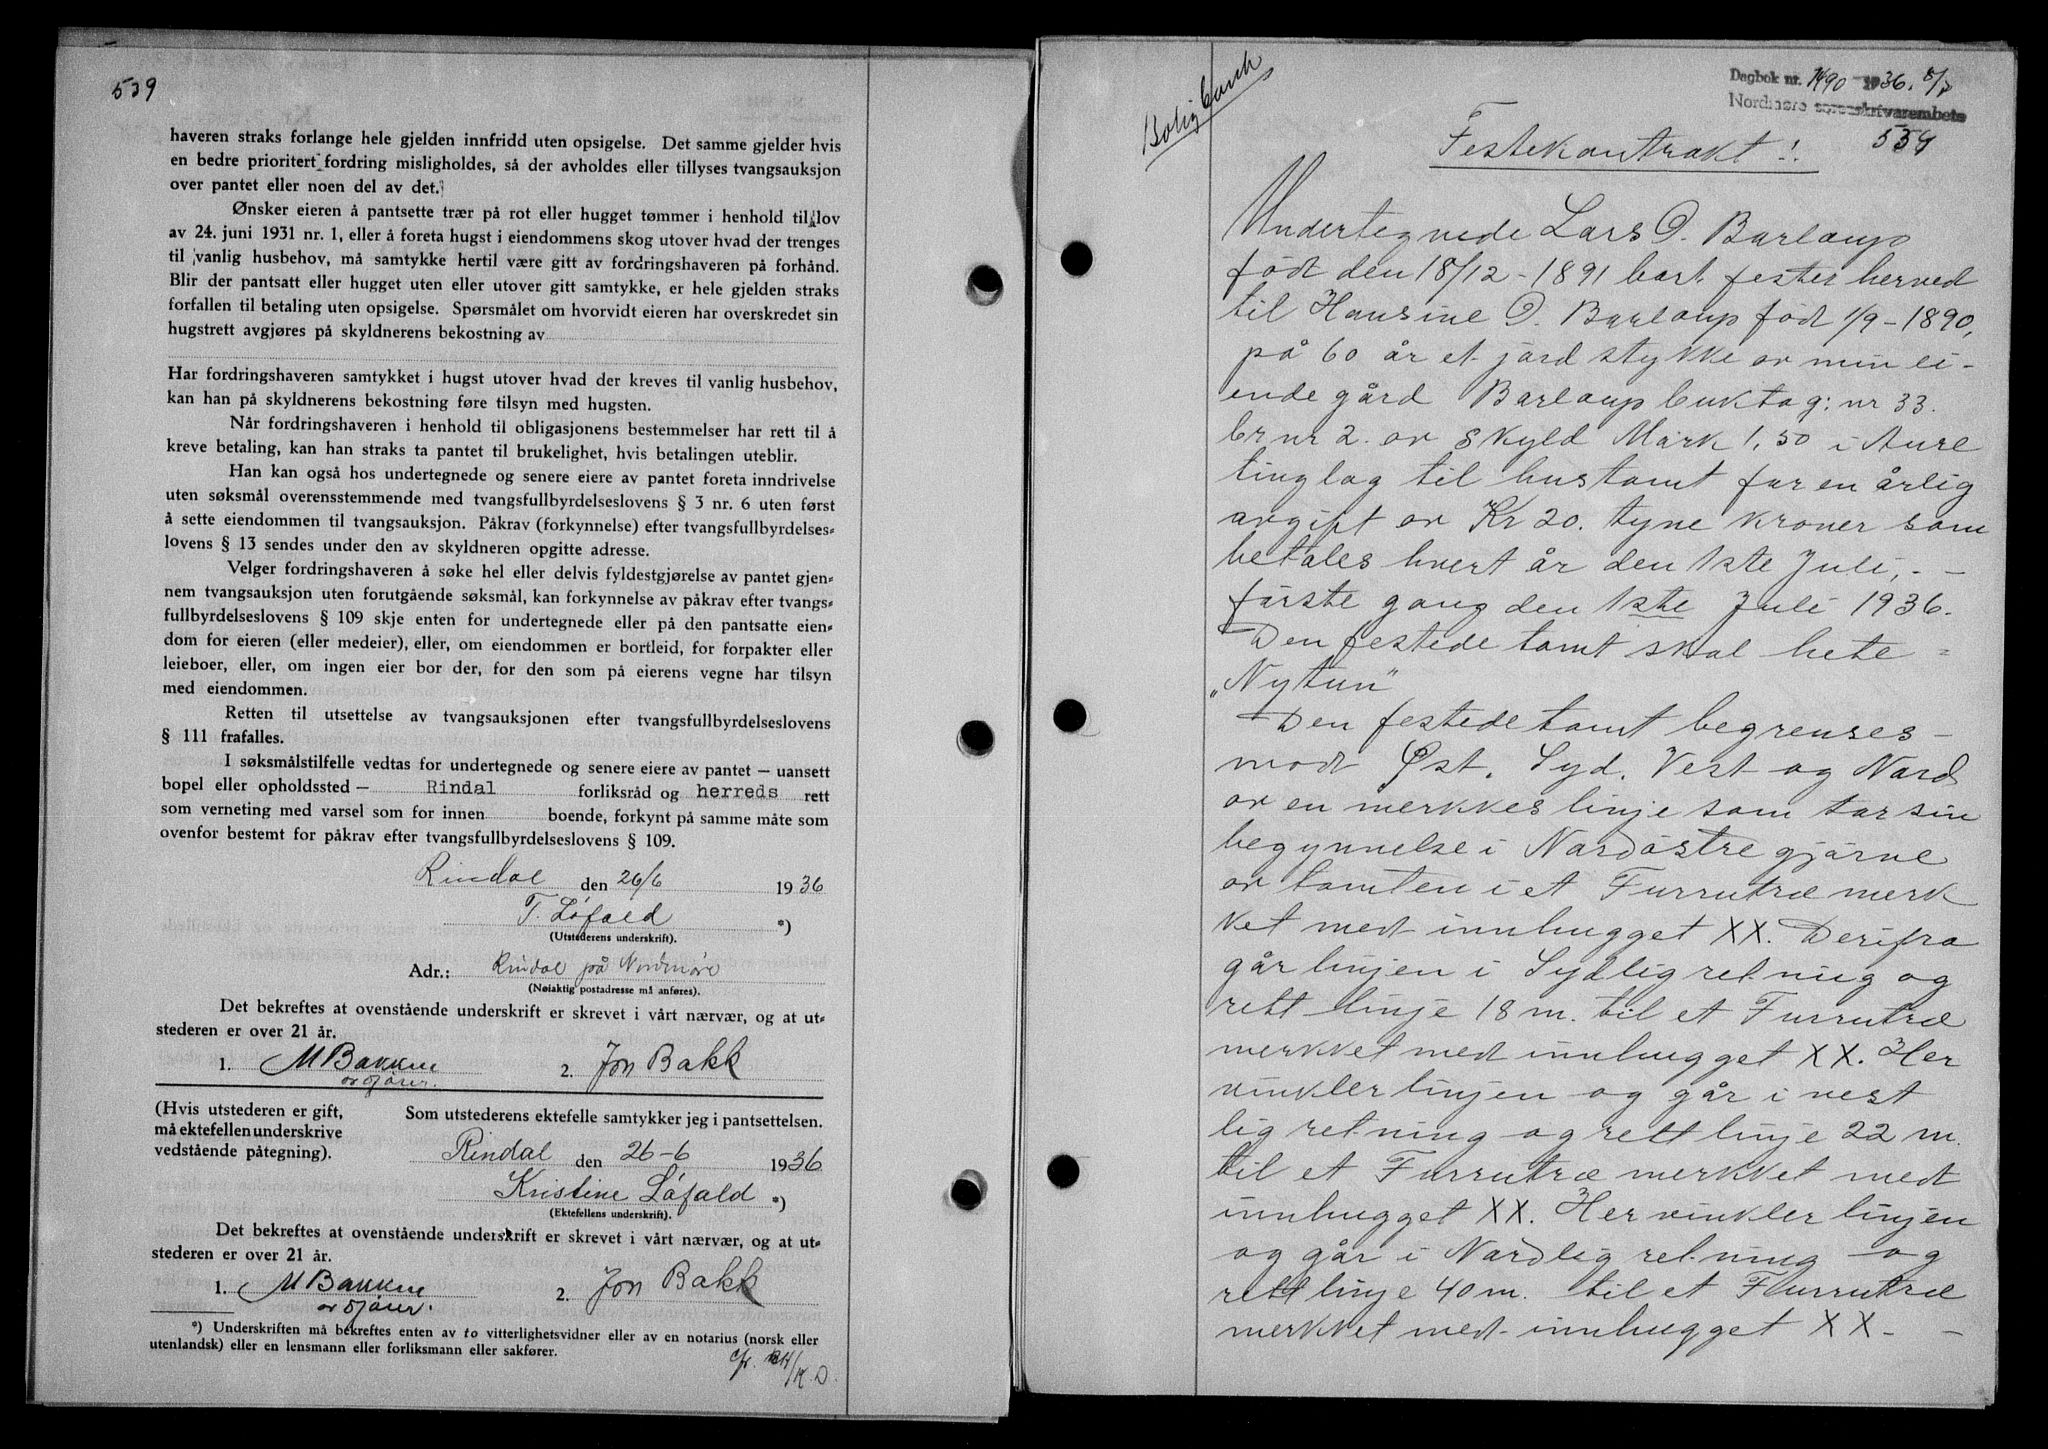 539
haveren straks forlange hele gjelden innfridd uten opsigelse. Det samme gjelder hvis
en bedre prioritert fordring misligholdes, så der avholdes eller tillyses tvangsauksjon
over pantet eller noen del av det.
Ønsker eieren å pantsette trær på rot eller hugget tømmer i henhold til lov
av 24. juni 1931 nr. 1, eller å foreta hugst i eiendommens skog utover hvad der trenges
til vanlig husbehov, må samtykke hertil være gitt av fordringshaveren på forhånd.
Blir der pantsatt eller hugget uten eller utover gitt samtykke, er hele gjelden straks
forfallen til betaling uten opsigelse. Spørsmålet om hvorvidt eieren har overskredet sin
hugstrett avgjøres på skyldnerens bekostning av
Har fordringshaveren samtykket i hugst utover hvad der kreves til vanlig husbehov,
kan han på skyldnerens bekostning føre tilsyn med hugsten.
Når fordringshaveren i henhold til obligasjonens bestemmelser har rett til å
kreve betaling, kan han straks ta pantet til brukelighet, hvis betalingen uteblir.
Han kan også hos undertegnede og senere eiere av pantet foreta inndrivelse
uten søksmål overensstemmende med tvangsfullbyrdelseslovens § 3 nr. 6 uten først
å sette eiendommen til tvangsauksjon. Påkrav (forkynnelse) efter tvangsfullbyrdelses-
lovens § 13 sendes under den av skyldneren opgitte adresse.
Velger fordringshaveren å søke hel eller delvis fyldestgjørelse av pantet gjen-
nem tvangsauksjon uten forutgående søksmål, kan forkynnelse av påkrav efter tvangs-
fullbyrdelseslovens § 109 skje enten for undertegnede eller på den pantsatte eien-
dom for eieren (eller medeier), eller, om eiendommen er bortleid, for forpakter eller
leieboer, eller, om ingen eier bor der, for den som på eierens vegne har tilsyn
med eiendommen.
Retten til utsettelse av tvangsauksjonen efter tvangsfullbyrdelseslovens
§ 111 frafalles.
I søksmålstilfelle vedtas for undertegnede og senere eiere av pantet — uansett
bopel eller opholdssted — Rindal forliksråd og herreds rett
som verneting med varsel som for innen boende, forkynt på samme måte som
ovenfor bestemt for påkrav efter tvangsfullbyrdelseslovens § 109.
Rindal den 26/6 1936
T. Løfald *)
(Utstederens underskrift).
Adr.: Rindal på Nordmøre
(Nøiaktig postadresse må anføres).
Det bekreftes at ovenstående underskrift er skrevet i vårt nærvær, og at ut-
stederen er over 21 år.
1. M Bakken 2. Jon Bakk
(Hvis utstederen er gift, Som utstederens ektefelle samtykker jeg i pantsettelsen.
må ektefellen underskrive
vedstående påtegning).
Rindal den 26-6 1936
Kristine Løfald *)
(Ektefellens underskrift).
Det bekreftes at ovenstående underskrift er skrevet i vårt nærvær, og at ut-
stederen er over 21 år.
1. M Bakken 2. Jon Bakk
*) Underskriften må bekreftes enten av to vitterlighetsvidner eller av en notarius (norsk eller
utenlandsk) eller en lensmann eller forliksmann eller sakfører.
Dagbok nr. 1490 1936. 8/7
Nordmøre sorenskrivarembete
Festekontrakt!. 539
Undertegnede Lars O. Barlaup
født den 18/12-1891 bort fester herved
til Hansine O. Barlaup født 1/9-1890,
på 60 år et jordstykke av min ei-
ende gård Barlaup bukta g: nr 33.
br nr 2. av skyld Mark 1,50 i Aure
tinglag til hustomt for en årlig
avgift av Kr 20. tyve kroner som
betales hvert år den 1ste Juli, - -
første gang den 1ste Juli 1936.
Den festede tomt skal hete =
„Nytun"
Den festede tomt begrenses -
mot Øst. Syd. Vest og Nord
av en merkkeslinje som tar sin
begynnelse i Nordøstre gjørne
av tomten i et Furrutræ merk
ket met innhugget XX. Derifra
går linjen i Sydlig retning og
rett linje 18 m. til et Furrutræ
merkket med innhugget XX. Her
vinkler linjen og går i vest
lig retning og rett linje 22 m.
til et Furrutræ merkket med
innhugget XX. Her vinkler linjen
og går i Nordlig retning og
rett linje 40 m. til et Furrutræ
merkket med innhugget XX - -